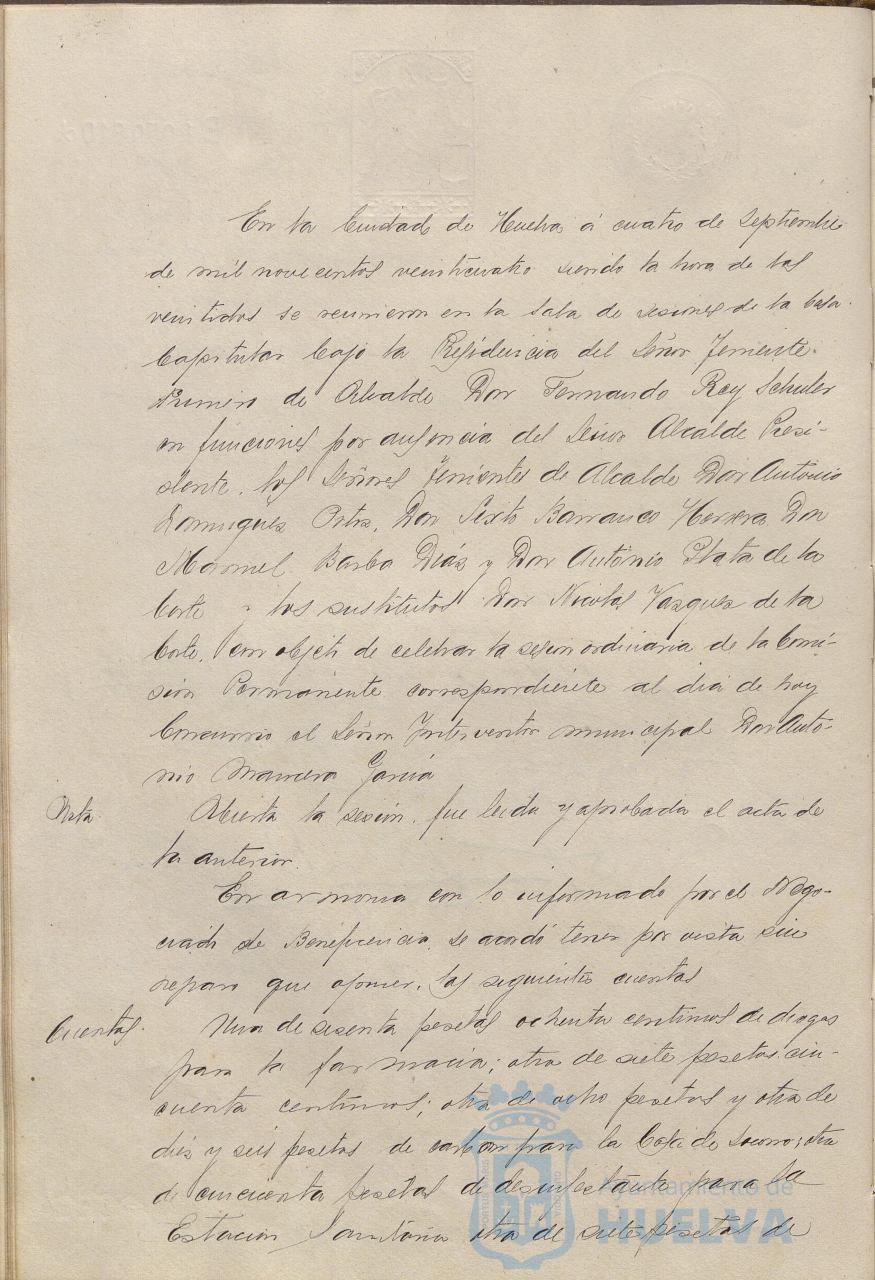 En la Ciudad de Huelva á cuatro de Septiembre
de mil novecentos veinticuatro siendo la hora de las
veintidos se reunieron en la sala de sesiones de la Casa
Capitular bajo la Presidencia del Señor Teniente
Primero de Alcalde Don Fernando Rey Schuler
en funciones por ausencia del Señor Alcalde Presi-
dente, los Señores Tenientes de Alcalde Don Antonio
Dominguez Ortiz, Don Sixto Barranco Herrera Don
Manuel Barba Diáz y Don Antonio Plata de la
Corte y los sustitutos Don Nicolas Vazquez de la
Corte, con objeto de celebrar la sesion ordinaria de la Comi-
sión Permanente correspondiente al dia de hoy
Concurrio el Señor Interventor municipal Don Anto-
nio García
Abierta la sesión, fue leida y aprobada el acta de
la anterior.
En armonia con lo informado por el Nego-
ciado de Beneficencia, se acordó tener por vista sin
reparo que oponer, las siguientes cuentas
Cuentas. Una de sesenta pesetas ochenta centimos de drogas
para la farmacia; otra de siete pesetas cin-
cuenta centimos; otra de ocho pesetas y otra de
diez y seis pesetas de carbon para la Casa de Socorro; otra
de cincuenta pesetas de desinfestante para la
Estacion Sanitaria otra de siete pesetas de
Ayuntamiento de
HUELVA